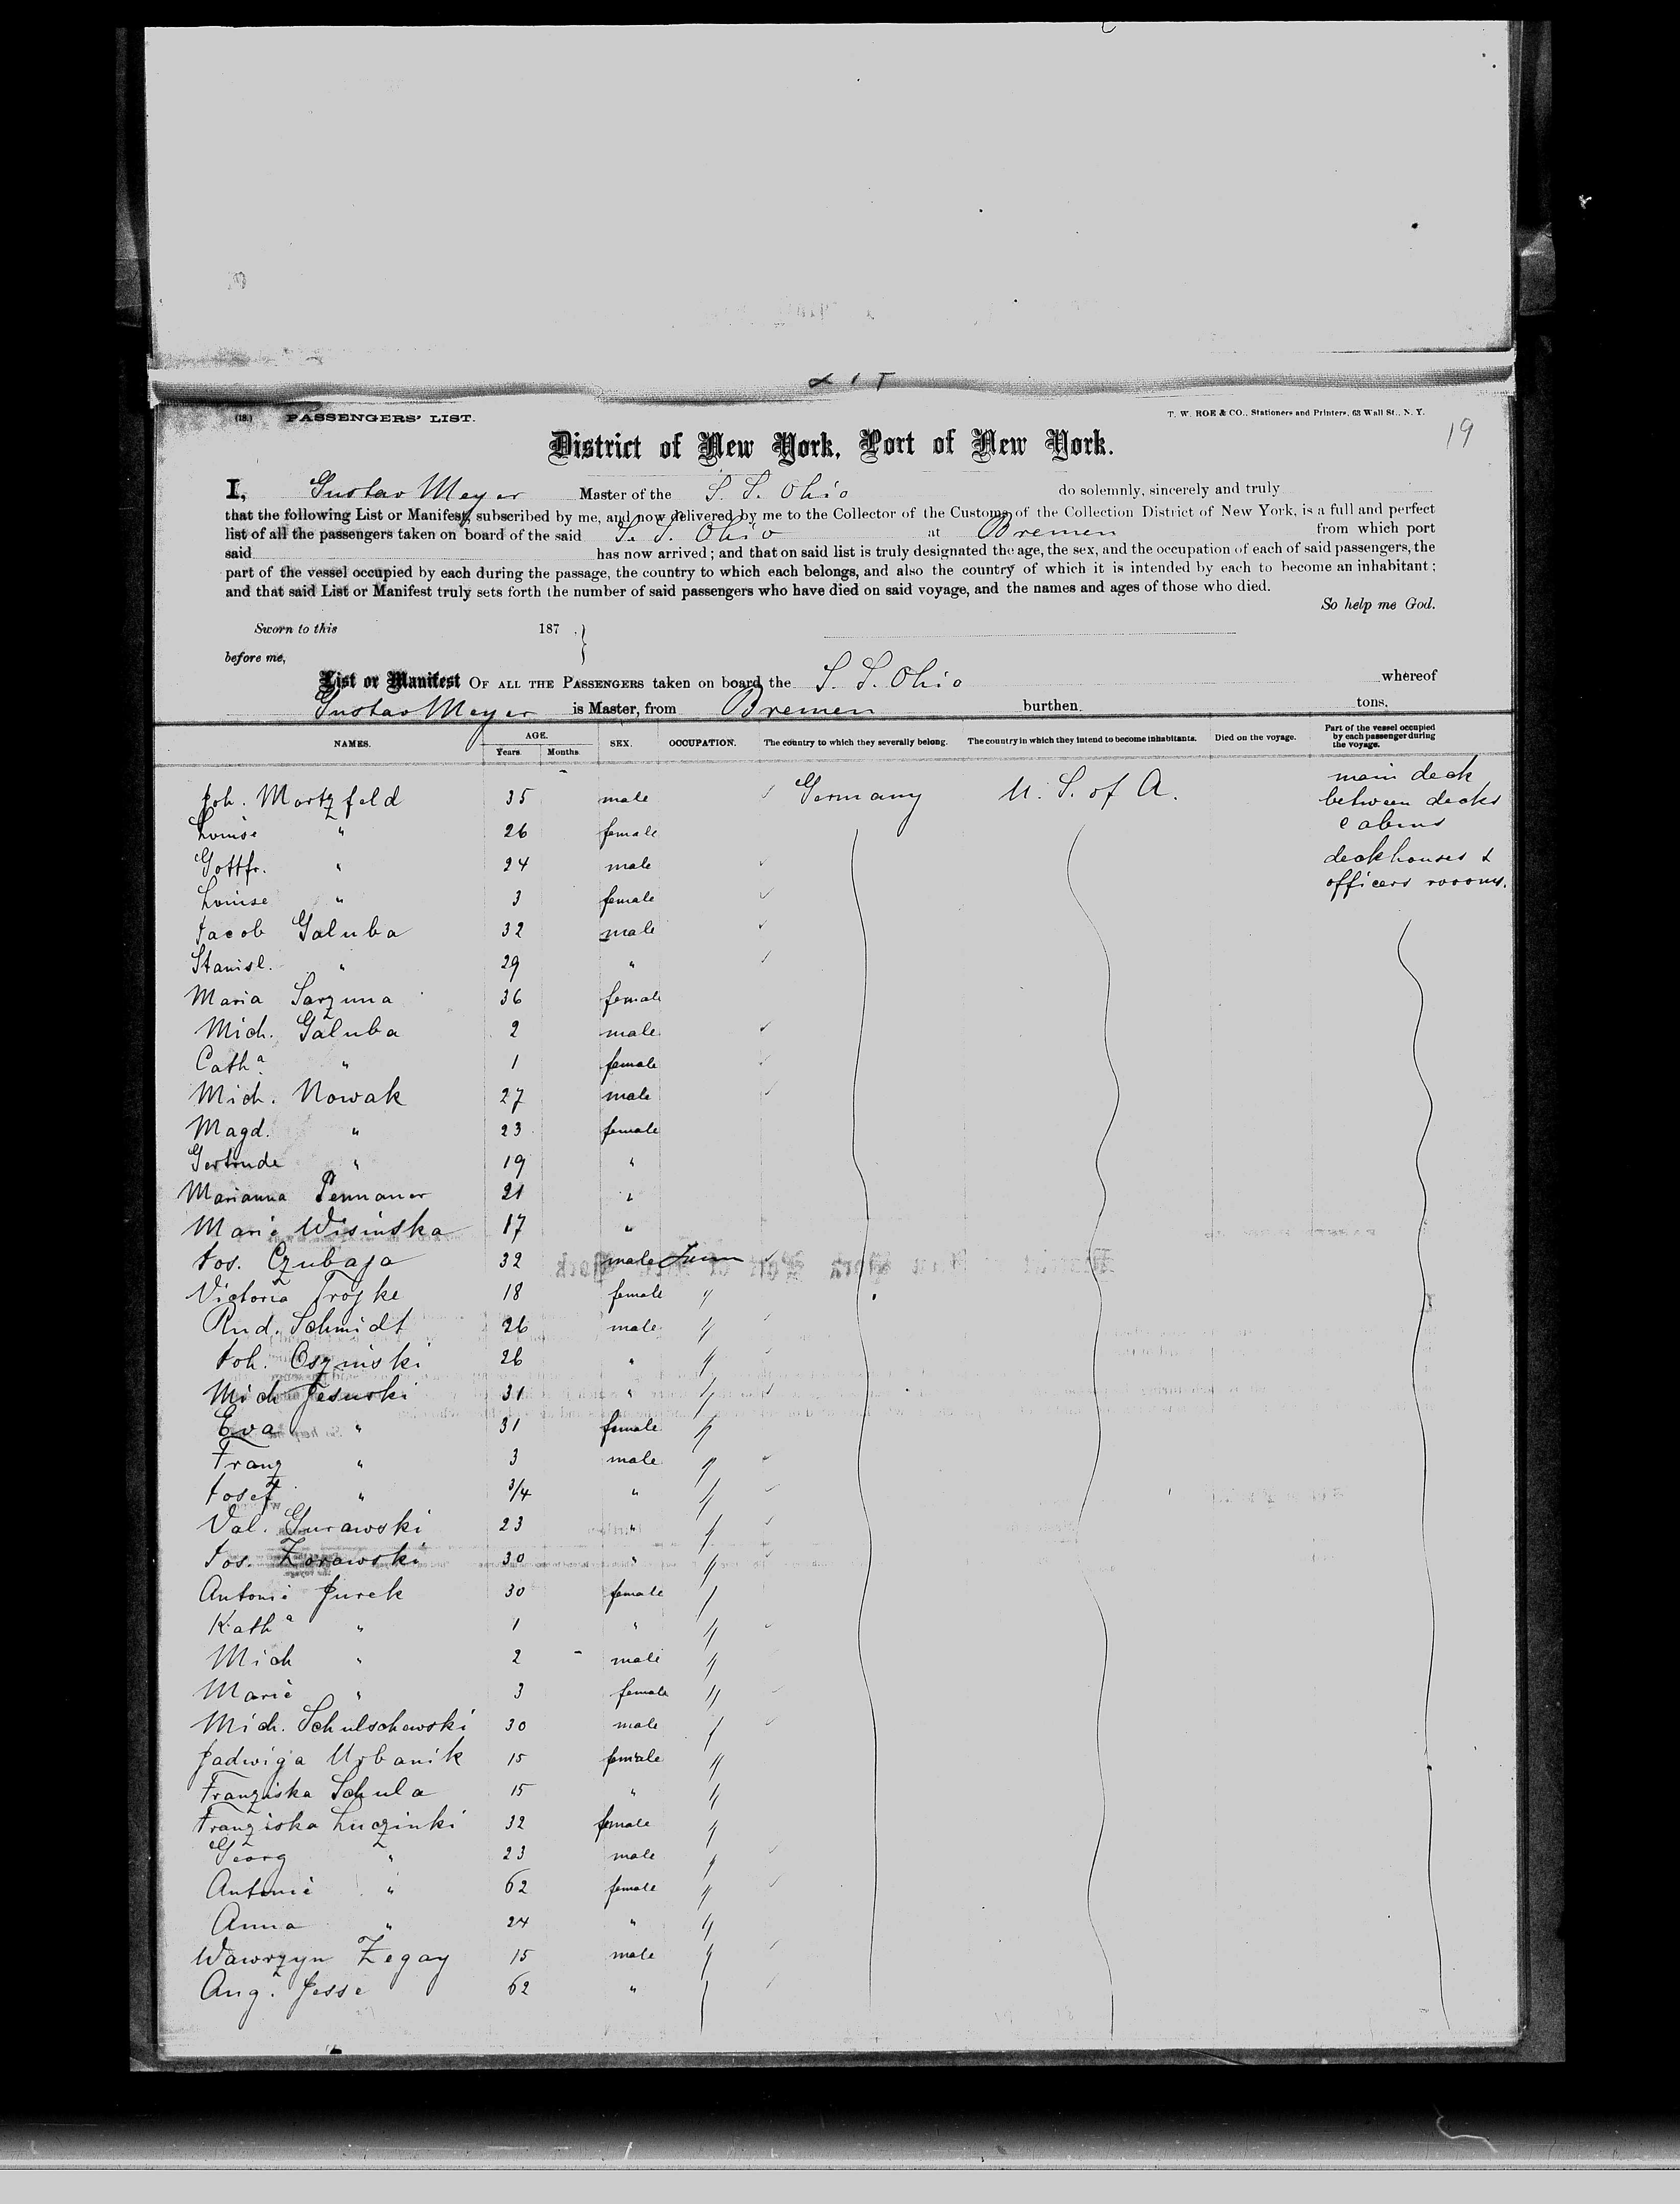 (18.) PASSENGERS' LIST. T. W. ROE & CO., Stationers and Printers, 63 Wall St., N. Y.
19
District of New York, Port of New York.
I, Gustav Meyer Master of the S. S. Ohio do solemnly, sincerely and truly
that the following List or Manifest, subscribed by me, and now delivered by me to the Collector of the Customs of the Collection District of New York, is a full and perfect
list of all the passengers taken on board of the said S. S. Ohio at Bremen from which port
said has now arrived; and that on said list is truly designated the age, the sex, and the occupation of each of said passengers, the
part of the vessel occupied by each during the passage, the country to which each belongs, and also the country of which it is intended by each to become an inhabitant;
and that said List or Manifest truly sets forth the number of said passengers who have died on said voyage, and the names and ages of those who died.
So help me God.
Sworn to this 187
before me,
List or Manifest OF ALL THE PASSENGERS taken on board the S. S. Ohio whereof
Gustav Meyer is Master, from Bremen burthen tons.
NAMES. AGE. Years. Months. SEX. OCCUPATION. The country to which they severally belong. The country in which they intend to become inhabitants. Died on the voyage. Part of the vessel occupied by each passenger during the voyage.
Joh. Mortzfeld 35 male Germany U. S. of A. main deck between decks
Louise " 26 female cabins
Gottfr. " 24 male deckhouses &
Louise " 3 female officers rooms.
Jacob Galuba 32 male
Stanisl. " 29 "
Maria Sarzuna 36 female
Mich. Galuba 2 male
Catha. " 1 female
Mich. Nowak 27 male
Magd. " 23 female
Gertrude " 19 "
Marianna 21 "
Marie Wisinska 17 "
Jos. Czubaja 32 male
Victoria Trojke 18 female "
Rud. Schmidt 26 male "
Joh. Oszinski 26 " "
Mich Jesuski 31 " "
Eva " 31 female "
Franz " 3 male "
Josef " 3/4 " "
Val. Gurawski 23 " "
Jos. Zorawski 30 " "
Antonie Jurek 30 female "
Katha " 1 " "
Mich " 2 male "
Marie " 3 female "
Mich. Schulschewski 30 male "
Jadwiga Urbanik 15 female "
Franziska Schula 15 " "
Franziska Luczinki 32 female "
Georg " 23 male "
Antonie " 62 female "
Anna " 24 " "
Wawrzyn Zegay 15 male "
Aug. Jesse 62 "